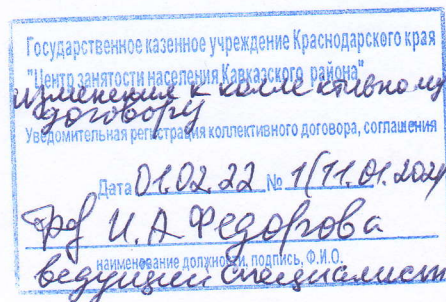 Государственное казенное учреждение Краснодарского края
"Центр занятости населения Кавказского района"
изменения к коллективному
договору
Уведомительная регистрация коллективного договора, соглашения
Дата 01.02.22 № 1(11.01.2021
И.А Федорова
наименование должности, подпись, Ф.И.О.
ведущий специалист